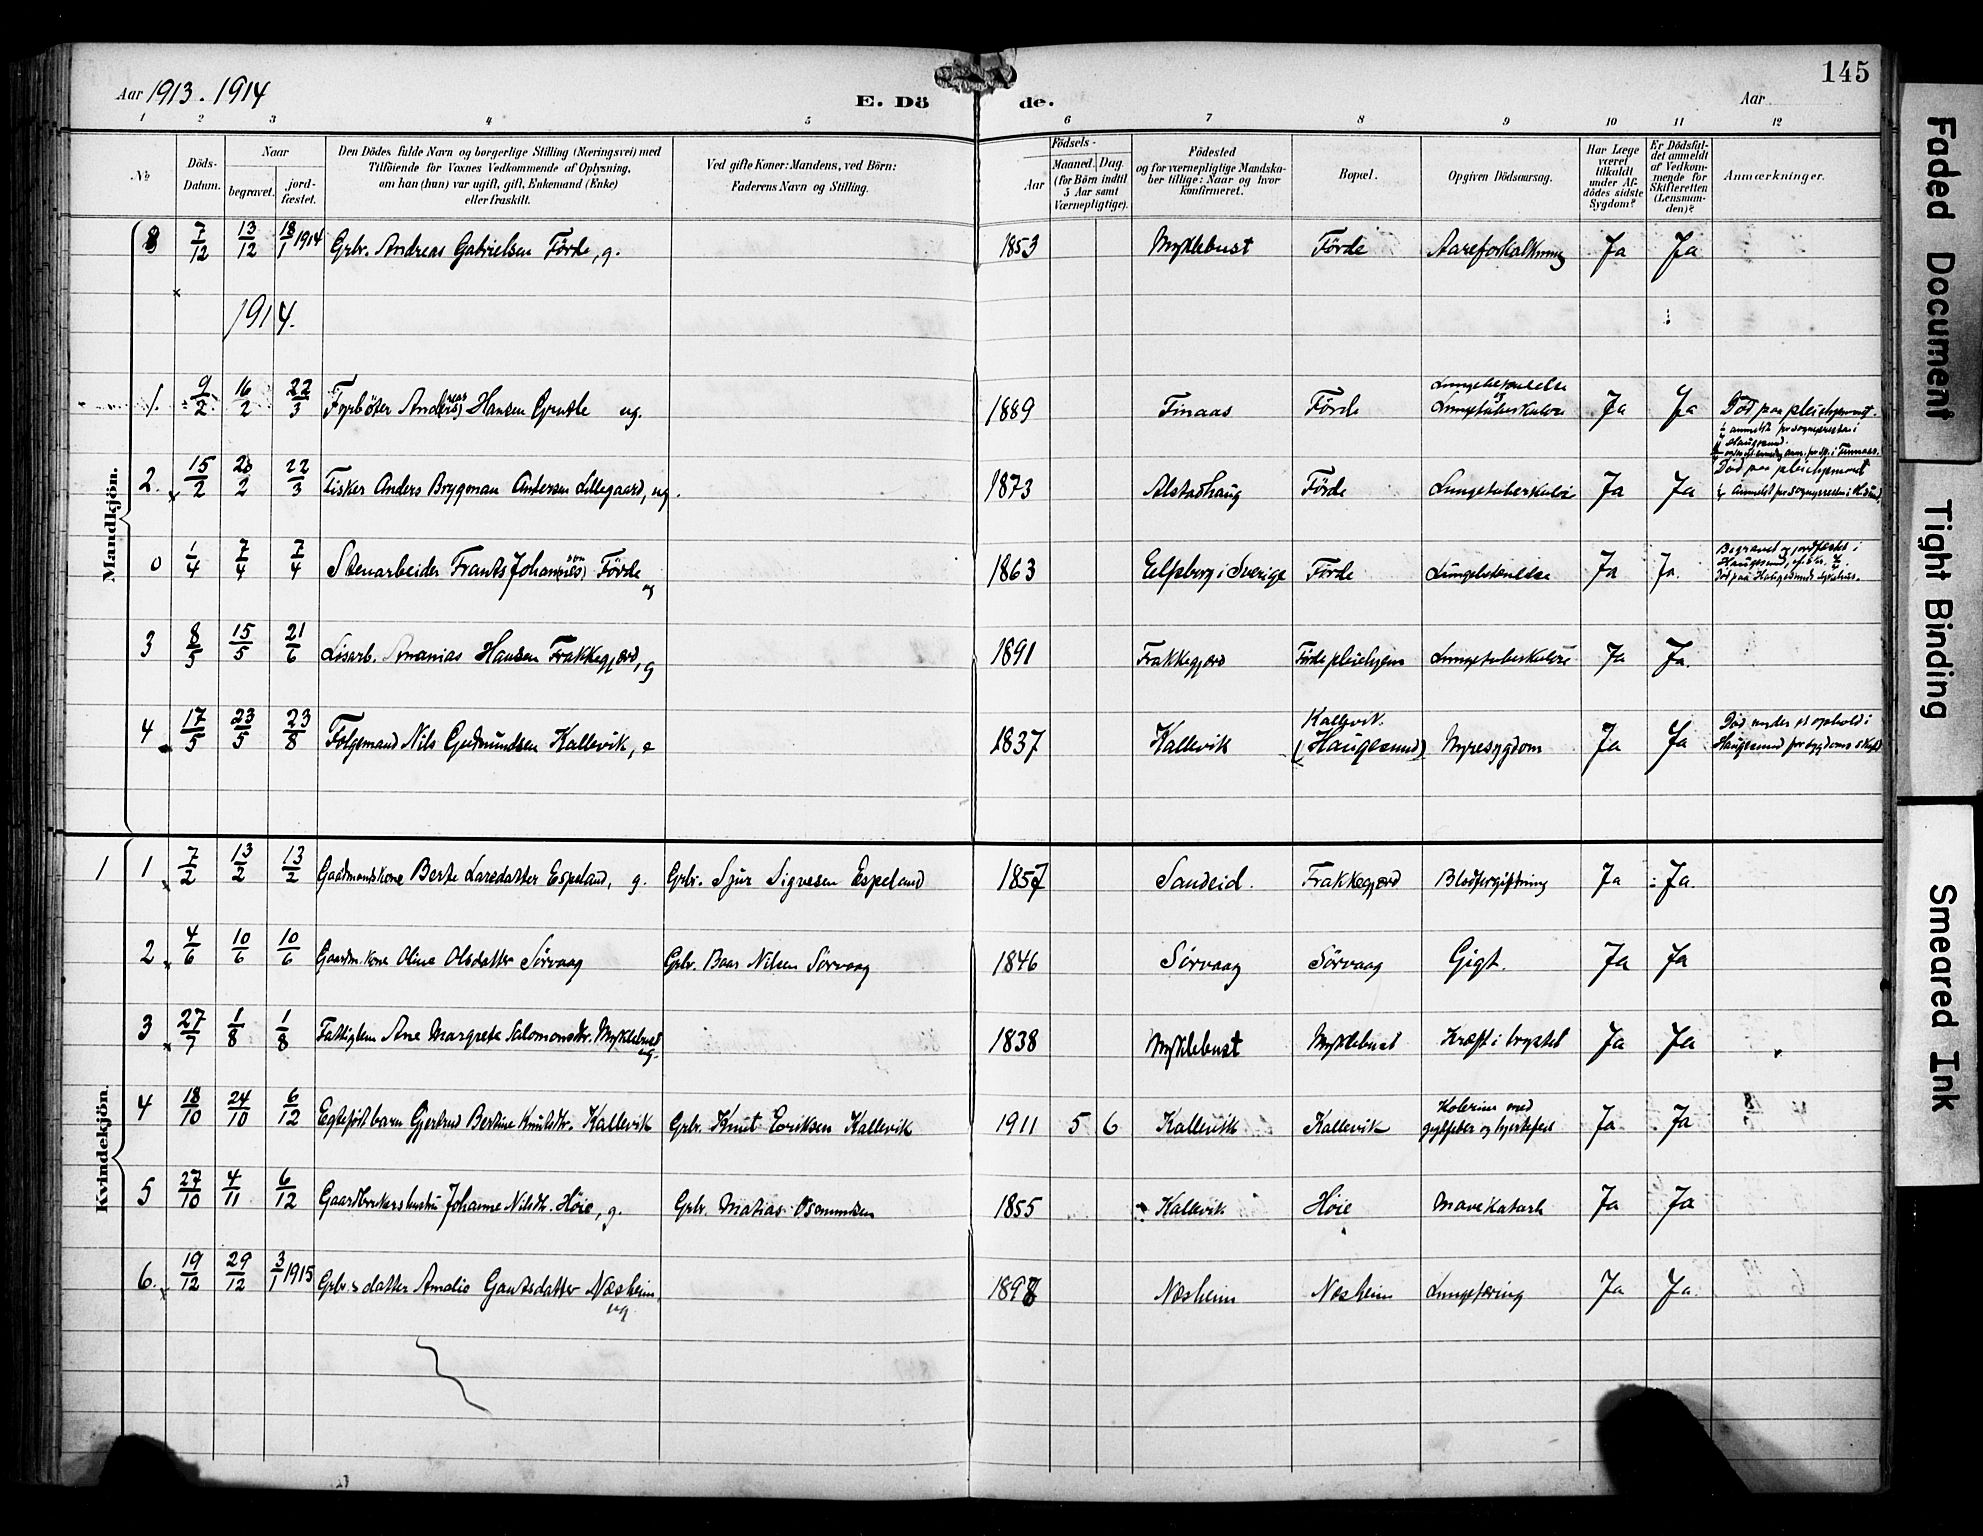 145
Aar 1913. 1914
E. Dö de.
Aar
1 2 3 4 5 6 7 8 9 10 11 12
No.
Döds-Datum.
Naar
begravet.
jord-fæstet.
Den Dödes fulde Navn og borgerlige Stilling (Næringsvei) med
Tilföiende for Voxnes Vedkommende af Oplysning,
om han (hun) var ugift, gift, Enkemand (Enke)
eller fraskilt.
Ved gifte Koner: Mandens, ved Börn:
Faderens Navn og Stilling.
Födsels-
Aar
Maaned. Dag.
(for Börn indtil
5 Aar samt
Værnepligtige).
Födested
og for værnepligtige Mandska-
ber tillige: Naar og hvor
konfirmeret.
Bopæl.
Opgiven Dödsaarsag.
Har Læge
været
tilkaldt
under Af-
dödes sidste
Sygdom?
Er Dödsfal-
det anmeldt
af Vedkom-
mende for
Skifteretten
(Lensman-
den)?
Anmærkninger.
Mandkjön.
8 7/12 13/12 18/1 1914 Grbr. Andreas Gabrielsen Förde, g. 1853 Myklebust Förde Aareforkalkning Ja Ja
1914.
1. 9/2 16/2 22/3 Fyrbøter Andreas Hansen Grutle ug. 1889 Finaas Förde Lungebetændelse og Lungetuberkulose Ja Ja Död paa pleiehjemmet.
2. 15/2 20/2 22/3 Fisker Anders Brygman Andersen Lillegaard, ug. 1873 Alstadhaug Förde Lungetuberkulose Ja Ja Död paa pleiehjemmet
0 1/4 7/4 7/4 Stenarbeider Frants Johannes Förde ug 1863 Elfsborg i Sverige Förde Lungebetændelse Ja Ja. Begravet og jordfæstet i
Haugesund,
Död paa Haugesunds sykehus.
3 8/5 15/5 21/6 Løsarb. Ananias Hansen Frakkegjerd, g 1891 Frakkegjerd Förde pleiehjem Lungetuberkulose Ja Ja.
4 17/5 23/5 23/8 Følgemand Nils Gudmundsen Kallevik, e 1837 Kallevik Kallevik. (Haugesund) Nyresygdom Ja Ja Död under et ophold i
Haugesund for sygdoms skyld
Kvindekjön.
1 1 7/2 13/2 13/2 Gaardmandskone Berte Larsdatter Espeland, g. Grbr. Sjur Sigvesen Espeland 1857 Sandeid. Frakkegjerd Blodforgiftning Ja Ja.
2 4/6 10/6 10/6 Gaardm.kone Oline Olsdatter Sörvaag Grbr. Baar Nilsen Sörvaag 1846 Sörvaag Sörvaag Gigt. Ja Ja
3 27/7 1/8 1/8 Fattiglem Ane Margrete Salomonsdtr. Myklebust ug. 1838 Myklebust Myklebust Kræft i brystet Ja Ja
4 18/10 24/10 6/12 Egtefödt barn Gjertrud Bertine Knutsdtr. Kallevik Grbr. Knut Eriksen Kallevik 1911 5 6 Kallevik Kallevik Kolerine med
gylfeber og hjertefeil Ja Ja
5 27/10 4/11 6/12 Gaardbrukershustru Johanne Nilsdtr. Høie, g. Grbr. Matias Osmundsen 1855 Kallevik Høie Mavekatarh Ja Ja
6. 19/12 29/12 3/1 1915 Grbr.s datter Amalie Gautsdatter Næsheim, ug 1898 Næsheim Næsheim Lungetæring Ja Ja.
Faded Document
Tight Binding
Smeared Ink